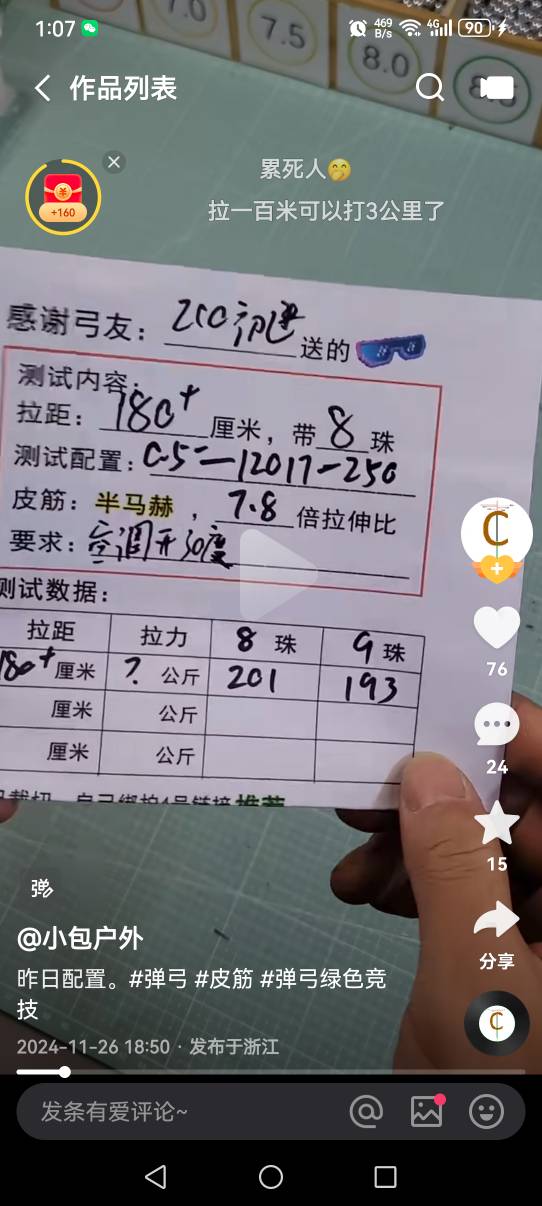 1:07
469 B/s 4G 90
7.0 7.5 8.0
作品列表
+160
累死人
拉一百米可以打3公里了
感谢弓友：200初速送的
测试内容：
拉距：180+厘米，带8珠
测试配置：0.5-12017-250
皮筋：半马赫，7.8倍拉伸比
要求：空调开30度
测试数据：
拉距 拉力 8珠 9珠
180+厘米 ?公斤 201 193
厘米 公斤
厘米 公斤
弹
@小包户外
76
24
15
分享
昨日配置。#弹弓 #皮筋 #弹弓绿色竞
技
2024-11-26 18:50 · 发布于浙江
发条有爱评论~